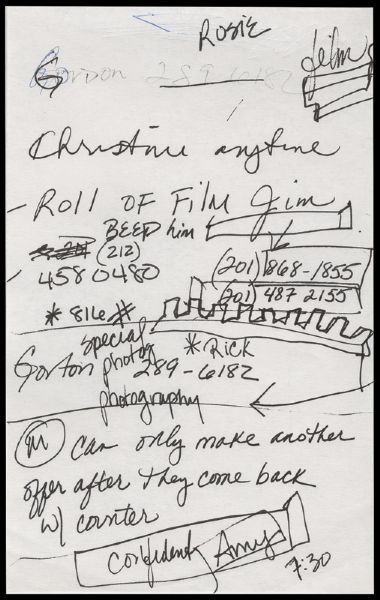 Rosie
film
Gordon 289-6182
Christine anytime
Roll of Film Jim
BEEP him
(212)
458 0480
(201) 868-1855
(201) 487 2155
*816#
special
Gorton photog *Rick
289-6182
photography
(M) can only make another
offer after they come back
w/ counter
Confident Amy
7:30